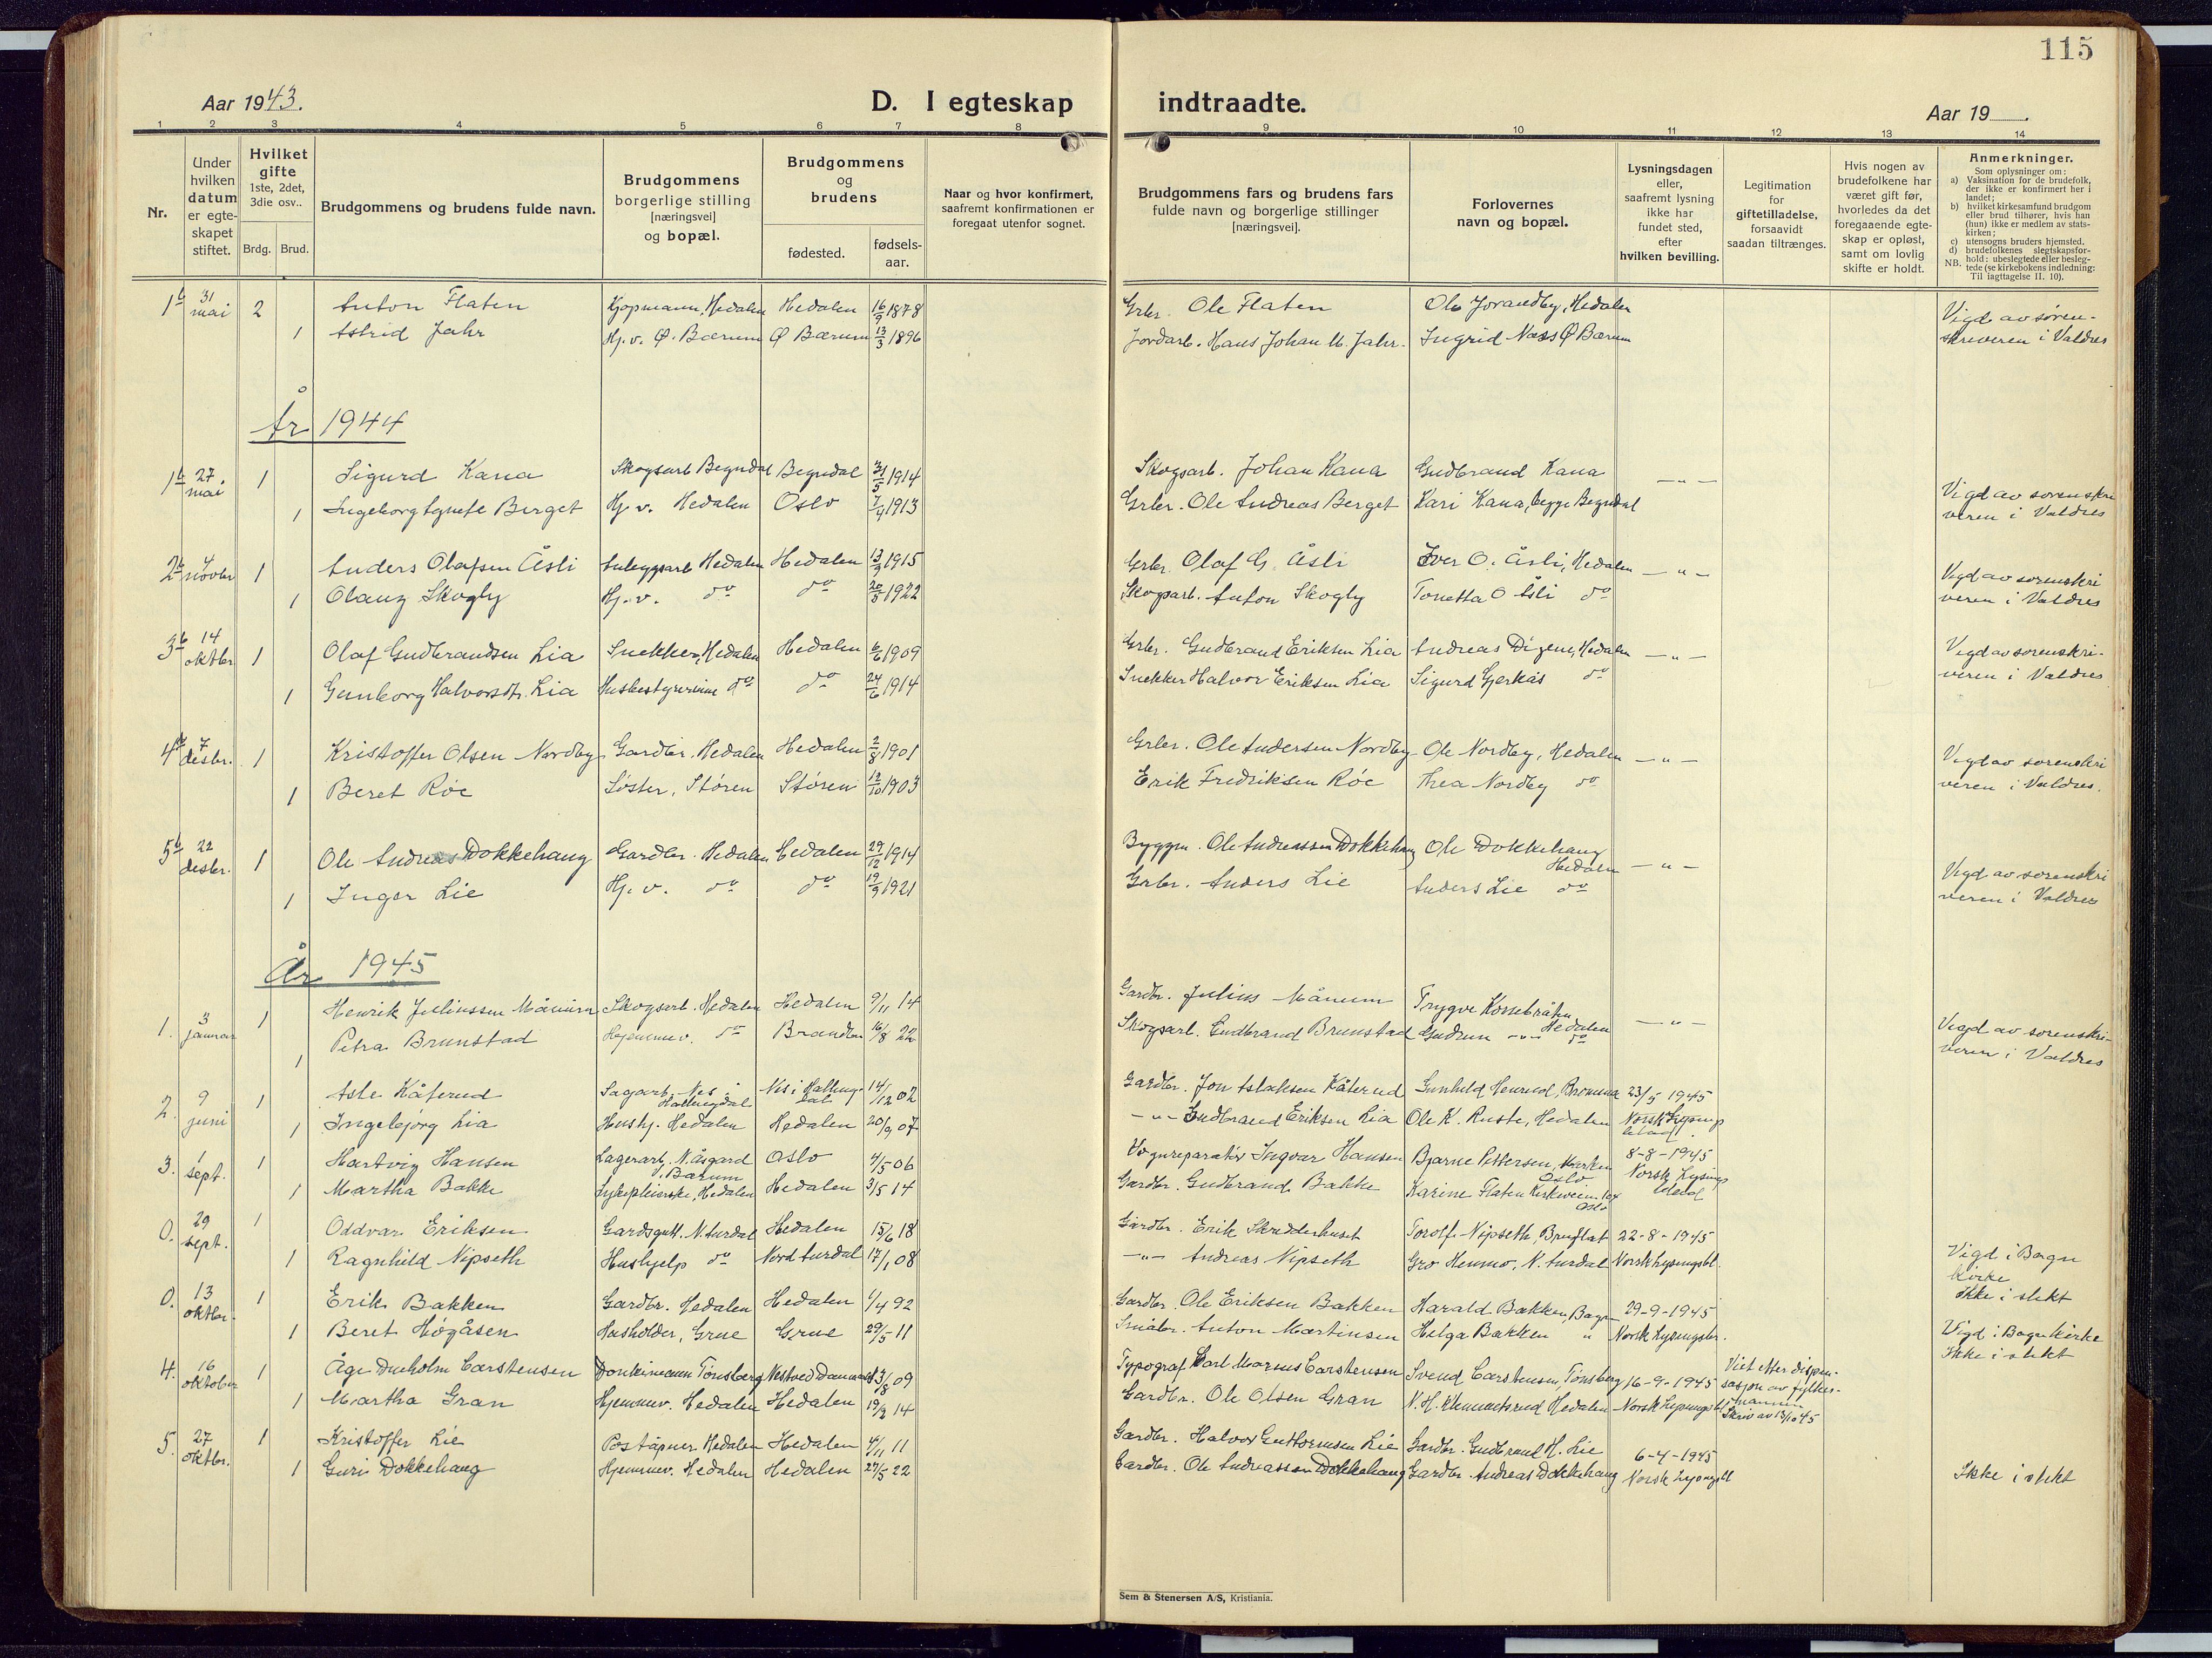 115
Aar 1943.
D. I egteskap indtraadte.
Aar 19___.
1 2 3 4 5 6 7 8 9 10 11 12 13 14
Nr.
Under hvilken datum er egte-skapet stiftet.
Hvilket gifte 1ste, 2det, 3die osv..
Brdg. Brud.
Brudgommens og brudens fulde navn.
Brudgommens borgerlige stilling [næringsvei] og bopæl.
Brudgommens og brudens
fødested.
fødsels-aar.
Naar og hvor konfirmert, saafremt konfirmationen er foregaat utenfor sognet.
Brudgommens fars og brudens fars fulde navn og borgerlige stillinger [næringsvei].
Forlovernes navn og bopæl.
Lysningsdagen eller, saafremt lysning ikke har fundet sted, efter hvilken bevilling.
Legitimation for giftetilladelse, forsaavidt saadan tiltrænges.
Hvis nogen av brudefolkene har været gift før, hvorledes da det foregaaende egte-skap er opløst, samt om lovlig skifte er holdt.
Anmerkninger.
Som oplysninger om:
a) Vaksination for de brudefolk, der ikke er konfirmert her i landet;
b) hvilket kirkesamfund brudgom eller brud tilhører, hvis han (hun) ikke er medlem av stats-kirken;
c) utensogns bruders hjemsted.
d) brudefolkenes slegtskapsfor-hold: ubeslegtede eller besleg-tede (se kirkebokens indledning: Til iagttagelse II. 10).
NB.
1 31 mai 2 Anton Flaten Kjøpmann, Hedalen Hedalen 16/9 1878 Grbr. Ole Flaten Ole Jorandby, Hedalen Vigd av soren-
1 Astrid Jahr Hj.v. Ø. Bærum Ø Bærum 13/3 1896 Jordarb. Hans Johan M. Jahr. Ingrid Næss Ø Bærum skriveren i Valdres
År 1944
1 27 mai 1 Sigurd Kana Skogsarb Begndal Begndal 31/5 1914 Skogsarb. Johan Kana Gudbrand Kana — " — Vigd av sorenskri
1 Ingeborg Agnete Berget Hj.v. Hedalen Oslo 7/4 1913 Grbr. Ole Andreas Berget Kari Kana, begge Begndal veren i Valdres
2 4 novbr 1 Anders Olafsen Åsli Anleggsarb Hedalen Hedalen 13/9 1915 Grbr. Olaf G. Åsli Iver O. Åsli, Hedalen — " — Vigd av sorenskri
1 Olaug Skogly Hj.v. do do 20/5 1922 Skogsarb. Anton Skogly Tonetta O Åsli do veren i Valdres
3 14 oktbr 1 Olaf Gudbrandsen Lia Snekker, Hedalen Hedalen 6/6 1909 Grbr. Gudbrand Eriksen Lia Andreas Digene, Hedalen — " — Vigd av sorenskri-
1 Gunborg Halvorsdtr. Lia Husbestyrerinne do do 24/6 1914 Snekker Halvor Eriksen Lia Sigurd Gjerkås do veren i Valdres
4 7 desbr. 1 Kristoffer Olsen Nordby Gardbr. Hedalen Hedalen 2/8 1901 Grbr. Ole Andersen Nordby Ole Nordby, Hedalen — " — Vigd av sorenskri
1 Beret Röe Söster, Stören Stören 12/10 1903 Erik Fredriksen Röe Thea Nordby do veren i Valdres.
5 22 desbr. 1 Ole Andreas Dokkehaug Gardbr. Hedalen Hedalen 29/12 1914 Byggm. Ole Andreassen Dokkehaug Ole Dokkehaug Hedalen — " — Vigd av sorenskri
1 Inger Lie Hj.v. do do 19/9 1921 Grbr. Anders Lie Anders Lie do veren i Valdres
År 1945
1. 3 januar 1 Henrik Juliussen Månum Skogsarb. Hedalen Hedalen 9/11 14 Gardbr. Julius Månum Trygve Hedalen — " — Vigd av sorenskri-
1 Petra Brunstad Hjemmev. do Brandbu 16/8 22 Skogsarb. Gudbrand Brunstad Gudrun — " — do veren i Valdres
2. 9 juni 1 Asle Kåterud Sagarb. Nes i Hallingdal Nes i Hallingdal 14/12 02 Gardbr. Jon Aslaksen Kåterud Gunhild Henrud, Bromma 23/5 1945
1 Ingebjørg Lia Hushj. Hedalen Hedalen 20/9 07 — " — Gudbrand Eriksen Lia Ole K. Ruste, Hedalen Norsk Lysingsblad.
3. 1 sept. 1 Hartvig Hansen Lagerarb, N. Åsgard Bærum Oslo 4/5 06 Vognreparatør Ingvar Hansen Bjarne Pettersen, Oslo 8-8-1945
1 Martha Bakke Sykepleierske, Hedalen Hedalen 3/5 14 Gardbr. Gudbrand Bakke Karine Flaten Kirkeveien Oslo Norsk Lysingsblad
0. 29 sept. 1 Oddvar Eriksen Gardsgutt. N. Aurdal Hedalen 15/6 18 Gardbr. Erik Skredderhuset Torolf Nipseth, Bruflat 22-8-1945
1 Ragnhild Nipseth Hushjelp do Nord Aurdal 17/1 08 — " — Andreas Nipseth Gro Hemmo, N. Aurdal Norsk Lysingsbl. Vigd i Bagn kirke Ikke i slekt
0. 13 oktbr. 1 Erik Bakken Gardbr. Hedalen Hedalen 1/4 92 Gardbr. Ole Eriksen Bakken Harald Bakken, Bagn 29-9-1945
1 Beret Høgåsen Husholder, Grue Grue 29/5 11 Småbr. Anton Martinsen Helga Bakken " Norsk Lysingsbl. Vigd i Bagn kirke Ikke i slekt
4. 16 oktober 1 Åge Dueholm Carstensen Tønsberg Nestved Danmark 13/8 09 Typograf Carl Marius Carstensen Svend Carstensen, Tønsberg 16-9-1945 Viet etter dispen-sasjon av fylkes-mannen Skriv av 13/10 45
1 Martha Gran Hjemmev. Hedalen Hedalen 19/2 14 Gardbr. Ole Olsen Gran N.H. Klemmetsrud Hedalen Norsk Lysingsbl
5. 27 oktbr. 1 Kristoffer Lie Poståpner Hedalen Hedalen 4/11 11 Gardbr. Halvor Guttormsen Lie Gardbr. Gudbrand H. Lie 6-4-1945
1 Guri Dokkehaug Hjemmev. Hedalen Hedalen 27/5 22 Gardbr. Ole Andreassen Dokkehaug Gardbr. Andreas Dokkehaug Norsk Lysingsbl Ikke i slekt
Sem & Stenersen A/S, Kristiania.